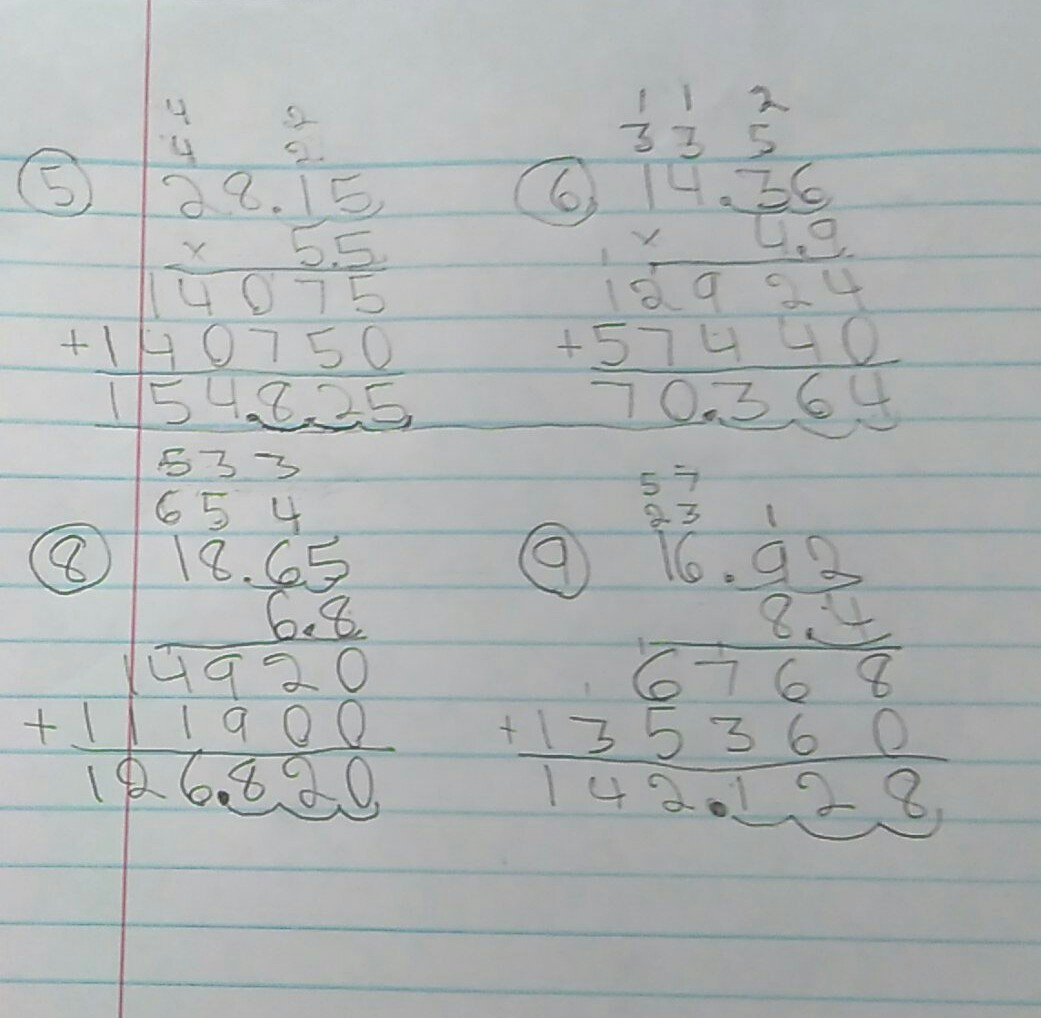 4 2
4 2
5 28.15
x 5.5
14075
+140750
154.8.25
1 1 2
3 3 5
6 14.36
x 4.9
12924
+57440
70.364
5 3 3
6 5 4
8 18.65
6.8
14920
+111900
126.820
5 7
2 3 1
9 16.92
8.4
6768
+135360
142.128